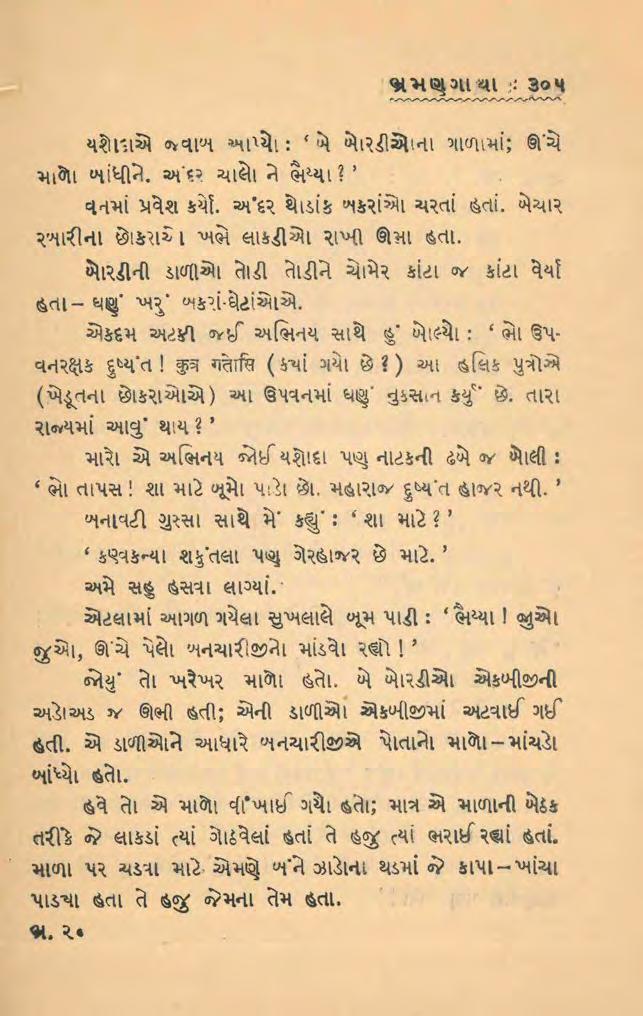 ભ્રમણગાથા : ૩૦૫
યશોદાએ જવાબ આપ્યો : ‘ બે બોરડીઓના ગાળામાં; ઊંચે
માળો બાંધીને. અંદર ચાલો ને ભૈય્યા ? ’
વનમાં પ્રવેશ કર્યો. અંદર થોડાંક બકરાંઓ ચરતાં હતાં. બેચાર
રબારીના છોકરાઓ ખભે લાકડીઓ રાખી ઊભા હતા.
બોરડીની ડાળીઓ તોડી તોડીને ચોમેર કાંટા જ કાંટા વેર્યા
હતા – ઘણું ખરું બકરાં-ઘેટાંઓએ.
એકદમ અટકી જઈ અભિનય સાથે હું બોલ્યો : ‘ ભો ઉપ-
વનરક્ષક દુષ્યંત ! कुत्र गतोसि ( કયાં ગયો છે ? ) આ હલિક પુત્રોએ
( ખેડૂતના છોકરાઓએ ) આ ઉપવનમાં ઘણું નુકસાન કર્યું છે. તારા
રાજ્યમાં આવું થાય ? ’
મારો એ અભિનય જોઈ યશોદા પણ નાટકની ઢબે જ બોલી :
‘ ભો તાપસ ! શા માટે બૂમો પાડો છો. મહારાજ દુષ્યંત હાજર નથી. ’
બનાવટી ગુસ્સા સાથે મેં કહ્યું : ‘ શા માટે ? ’
‘ કણ્વકન્યા શકુંતલા પણ ગેરહાજર છે માટે. ’
અમે સહુ હસવા લાગ્યાં.
એટલામાં આગળ ગયેલા સુખલાલે બૂમ પાડી : ‘ ભૈય્યા ! જુઓ
જુઓ, ઊંચે પેલો બનચારીજીનો માંડવો રહ્યો ! ’
જોયું તો ખરેખર માળો હતો. બે બોરડીઓ એકબીજીની
અડોઅડ જ ઊભી હતી; એની ડાળીઓ એકબીજીમાં અટવાઈ ગઈ
હતી. એ ડાળીઓને આધારે બનચારીજીએ પોતાનો માળો – માંચડો
બાંધ્યો હતો.
હવે તો એ માળો વીંખાઈ ગયો હતો; માત્ર એ માળાની બેઠક
તરીકે જે લાકડાં ત્યાં ગોઠવેલાં હતાં તે હજુ ત્યાં ભરાઈ રહ્યાં હતાં.
માળા પર ચડવા માટે એમણે બંને ઝાડોના થડમાં જે કાપા – ખાંચા
પાડયા હતા તે હજુ જેમના તેમ હતા.
ભ્ર. ૨૦